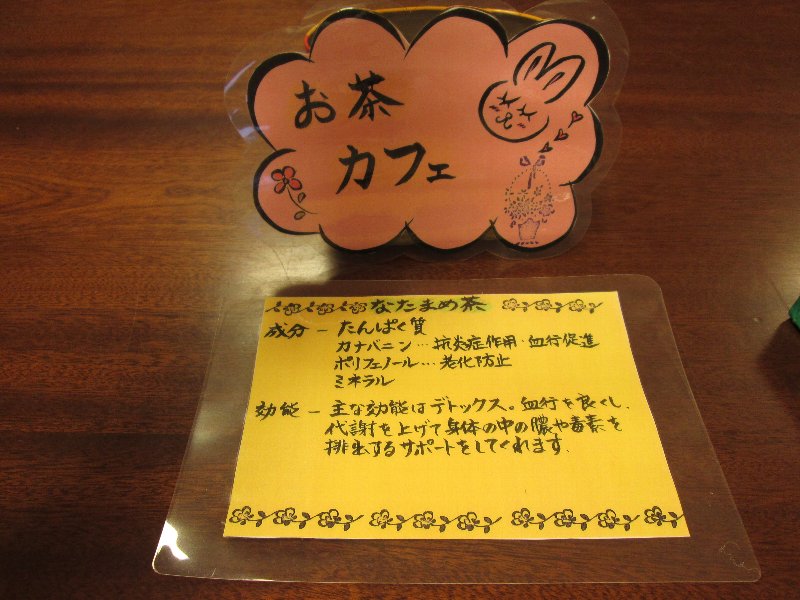 お茶
カフェ
なたまめ茶
成分 - たんぱく質
カナバニン…抗炎症作用・血行促進
ポリフェノール…老化防止
ミネラル
効能 - 主な効能はデトックス。血行を良くし、
代謝を上げて身体の中の膿や毒素を
排出するサポートをしてくれます。